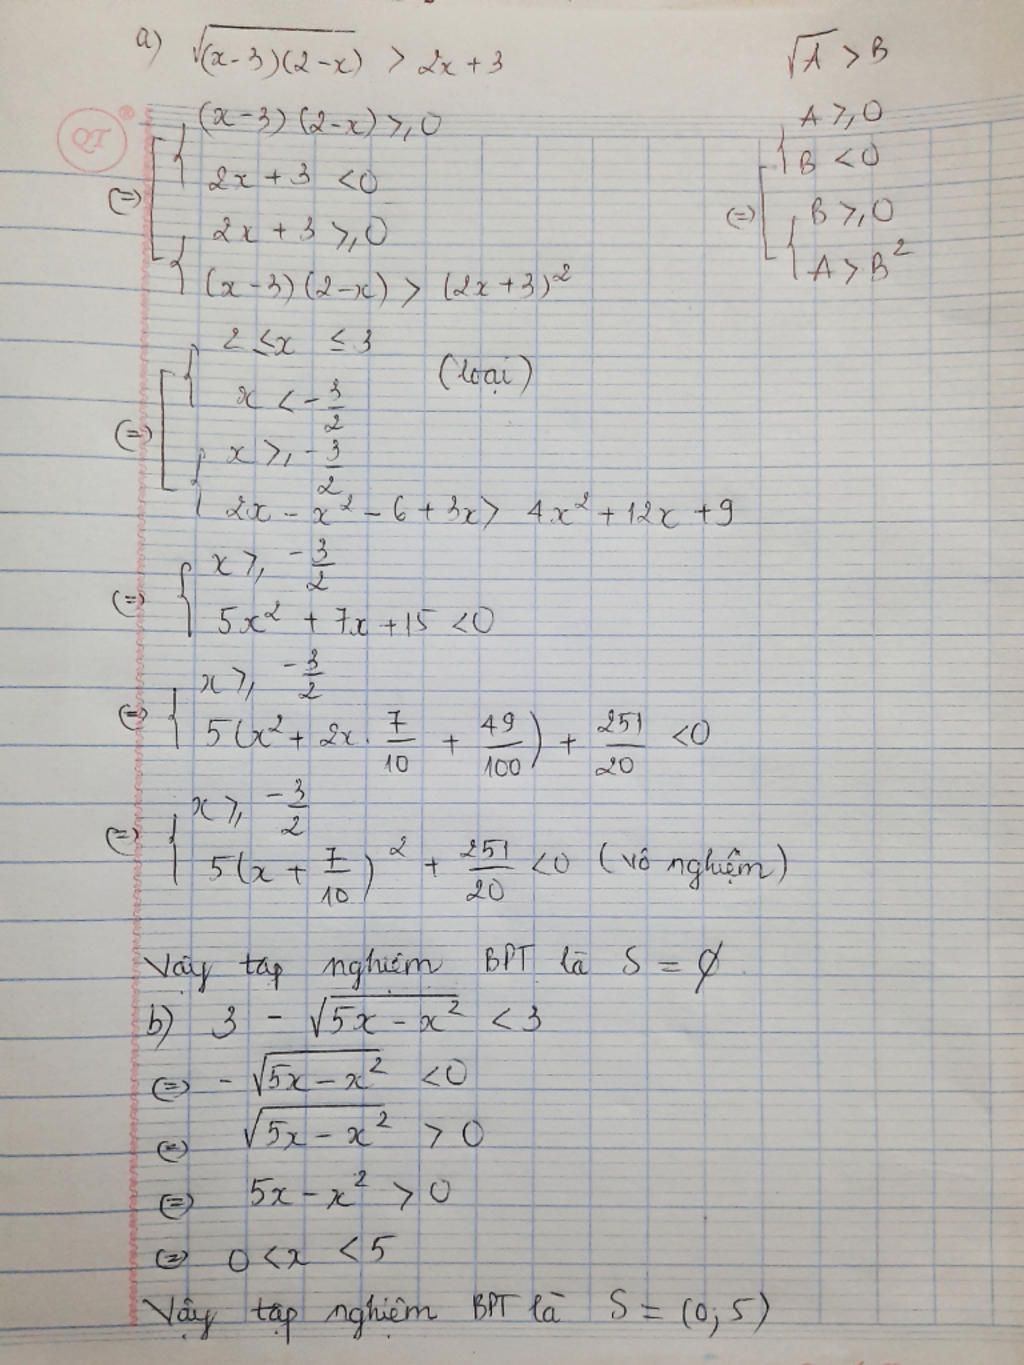 a) √(x-3)(2-x) > 2x+3
√A > B
QT®
(x-3)(2-x) ≥ 0
2x+3 < 0
(=) 2x+3 ≥ 0
(x-3)(2-x) > (2x+3)²
A ≥ 0
B < 0
(=) B ≥ 0
A > B²
2 ≤ x ≤ 3
x < -3/2 (loại)
(=) x ≥ -3/2
2x - x² - 6 + 3x > 4x² + 12x + 9
(=) x ≥ -3/2
5x² + 7x + 15 < 0
(=) x ≥ -3/2
5(x² + 2x. 7/10 + 49/100) + 251/20 < 0
(=) x ≥ -3/2
5(x + 7/10)² + 251/20 < 0 (vô nghiệm)
Vậy tập nghiệm BPT là S = ∅
b) 3 - √5x - x² < 3
(=) - √5x - x² < 0
(=) √5x - x² > 0
(=) 5x - x² > 0
(=) 0 < x < 5
Vậy tập nghiệm BPT là S = (0; 5)